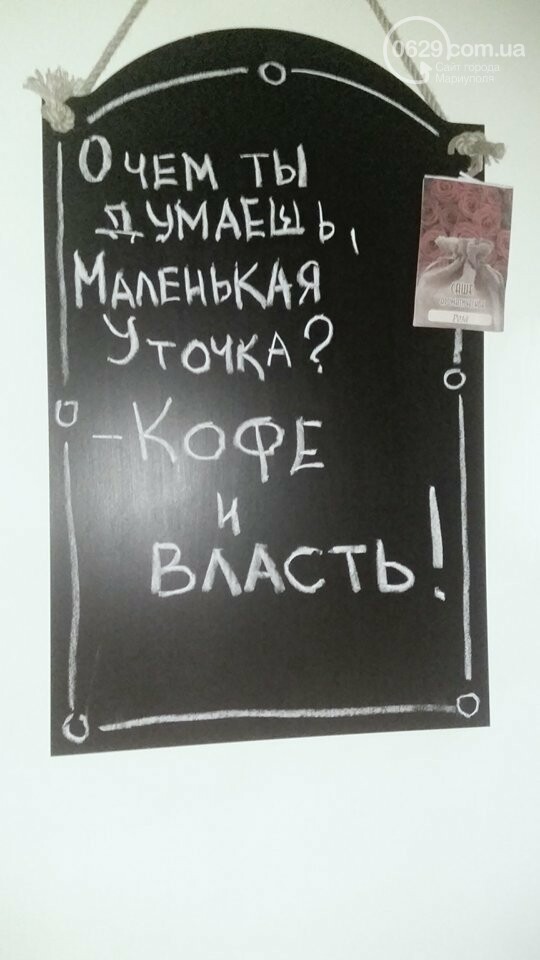 0629.com.ua
Сайт города
Мариуполя
О ЧЕМ ТЫ
ДУМАЕШЬ,
МАЛЕНЬКАЯ
УТОЧКА?
-КОФЕ
И
ВЛАСТЬ!
САШЕ